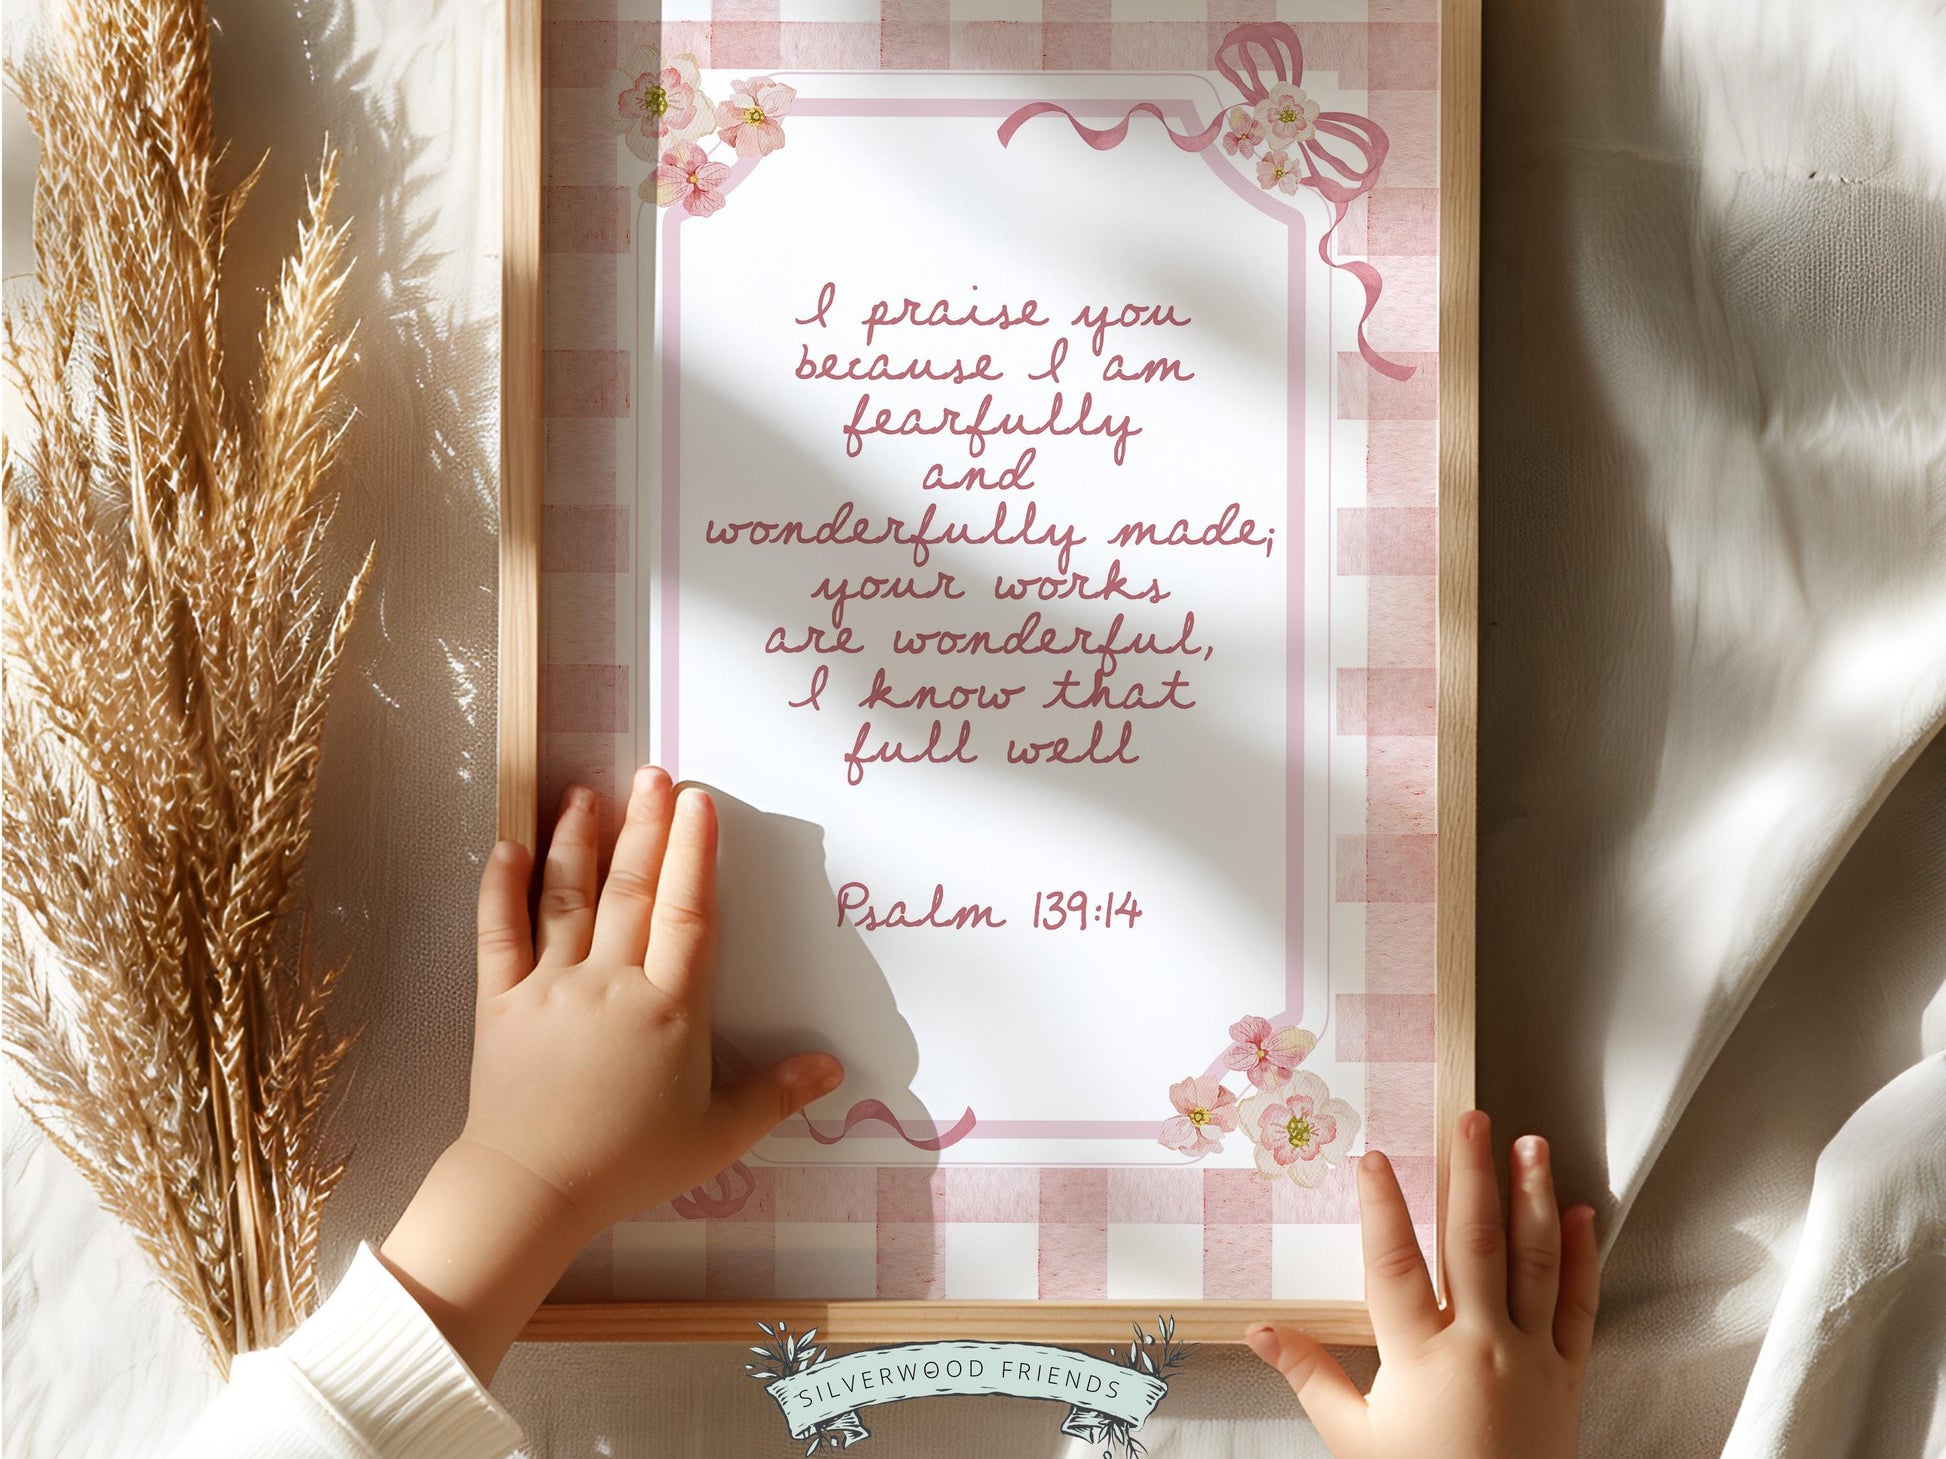 I praise you
because I am
fearfully
and
wonderfully made;
your works
are wonderful,
I know that
full well
Psalm 139:14
SILVERWOOD FRIENDS